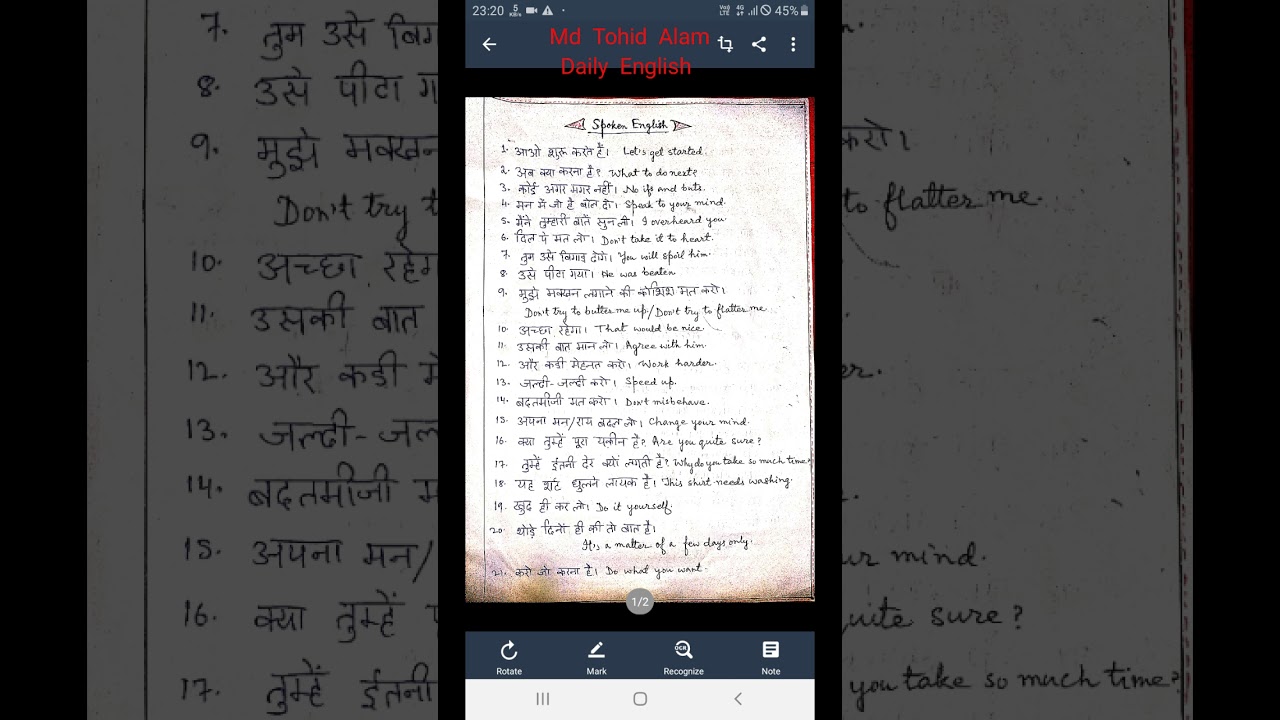 23:20 5 KB/s Vo) LTE 4G 45%
Md Tohid Alam
Daily English
Spoken English
1. आओ शुरू करते हैं। Let's get started.
2. अब क्या करना है? What to do next?
3. कोई अगर मगर नहीं। No ifs and buts.
4. मन में जो है बोल दो। Speak to your mind.
5. मैंने तुम्हारी बातें सुन ली। I overheard you.
6. दिल पे मत लो। Don't take it to heart.
7. तुम उसे बिगाड़ दोगे। You will spoil him.
8. उसे पीटा गया। He was beaten.
9. मुझे मक्खन लगाने की कोशिश मत करो।
Don't try to butter me up./Don't try to flatter me.
10. अच्छा रहेगा। That would be nice.
11. उसकी बात मान लो। Agree with him.
12. और कडी मेहनत करो। Work harder.
13. जल्दी-जल्दी करो। Speed up.
14. बदतमीजी मत करो। Don't misbehave.
15. अपना मन/राय बदल लो। Change your mind.
16. क्या तुम्हें पूरा यकीन है? Are you quite sure?
17. तुम्हें ईतनी देर क्यों लगती है? Why do you take so much time?
18. यह शर्ट धुलने लायक है। This shirt needs washing.
19. खुद ही कर लो। Do it yourself.
20. थोड़े दिनों ही की तो बात है।
It's a matter of a few days only.
21. करो जो करना है। Do what you want.
1/2
Rotate Mark Recognize Note
7. तुम उसे बिगा
8. उसे पीटा ग
9. मुझे मक्खन
Don't try t
10. अच्छा रहेगा
11. उसकी बात
12. और कडी मे
13. जल्दी-जल्
14. बदतमीजी म
15. अपना मन/
16. क्या तुम्हें
17. तुम्हें ईतनी
करो।
to flatter me.
er.
ur mind.
quite sure?
you take so much time?